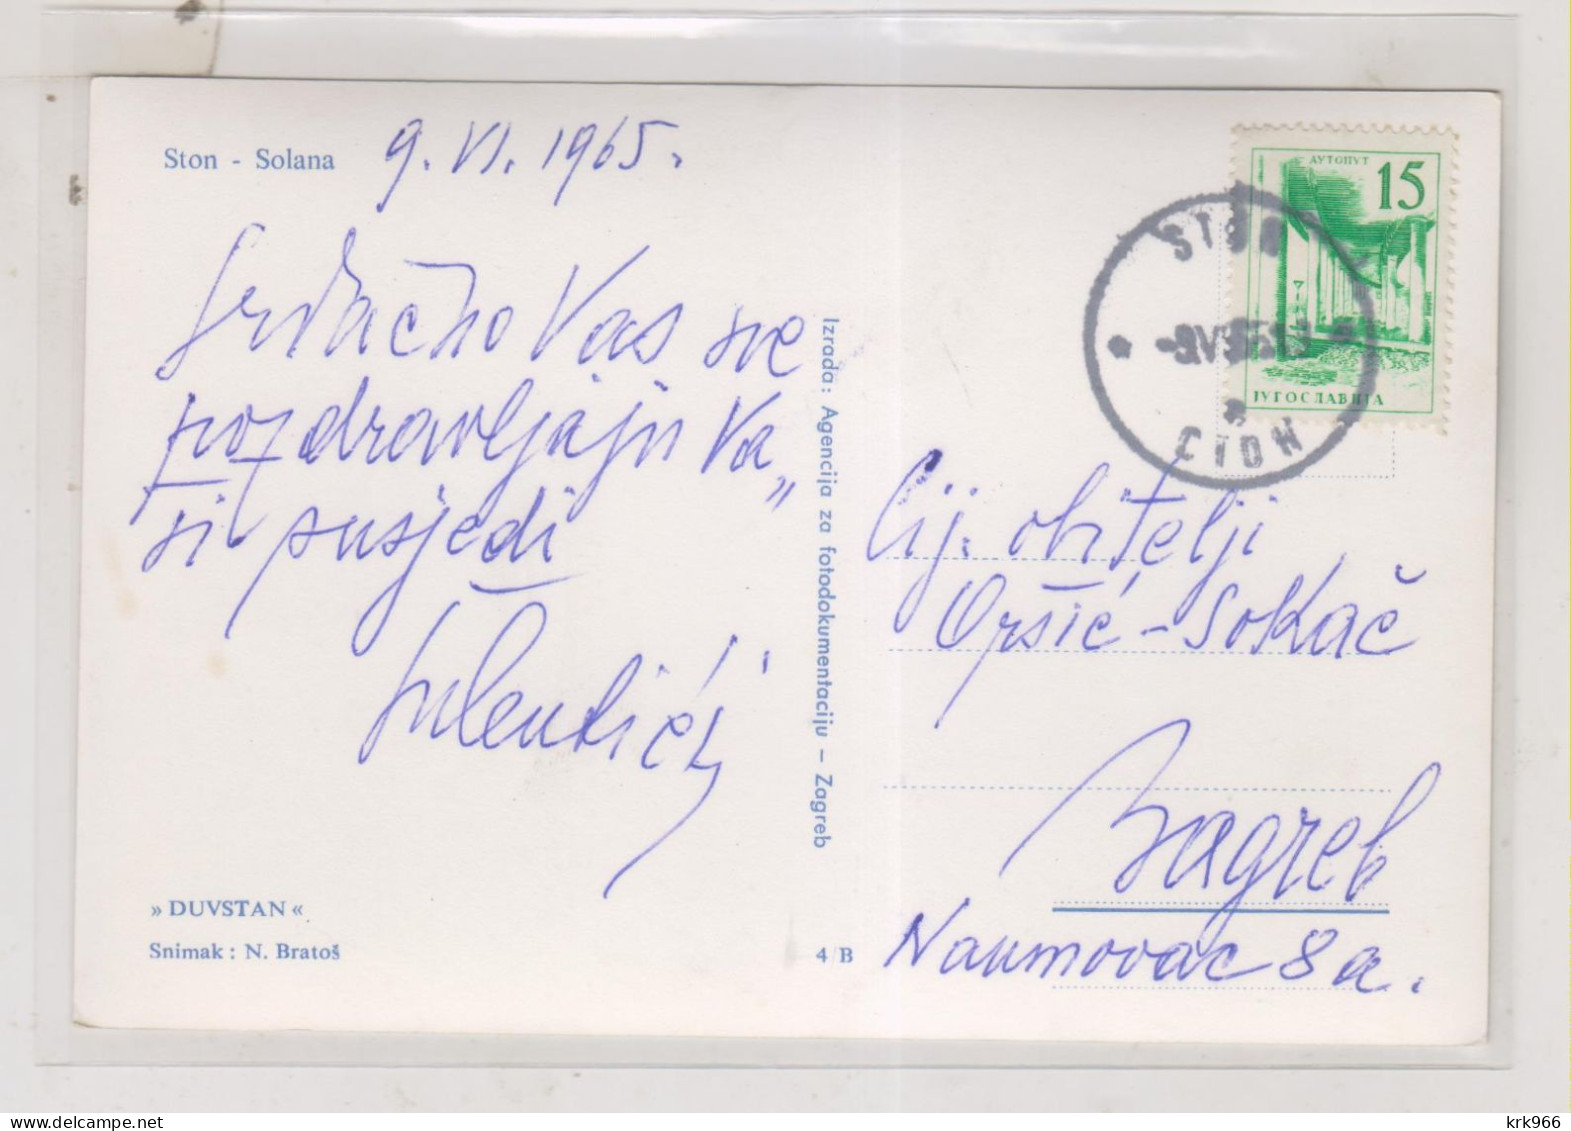 Ston - Solana
9. VI. 1965.
Srdačno Vas sve
pozdravljaju Va„
ši susjedi
» DUVSTAN «
Snimak : N. Bratoš
Izrada: Agencija za fotodokumentaciju – Zagreb
4/B
АУТОПУТ
15
ЈУГОСЛАВИЈА
STON
СТОН
Cij. obitelji
Oršić - Sokač
Zagreb
Naumovac 8a.
krk966